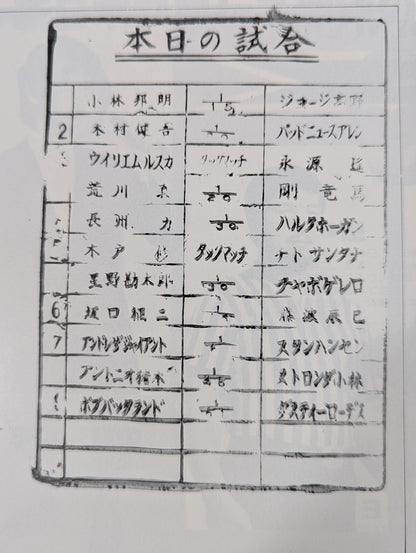 本日の試合
小林邦明 1/15 ジョージ高野
2 木村健吾 バッドニュースアレン
ウイリエムルスカ タッグマッチ 永源遙
荒川真 1/20 剛竜馬
長洲力 1/30 ハルクホーガン
木戸修 タッグマッチ チトサンタナ
星野勘太郎 1/30 チャボゲレロ
6 坂口征二 藤波辰巳
7 アンドレザジャイアント スタンハンセン
アントニオ猪木 ストロング小林
ボブバックランド ダスティーローデス